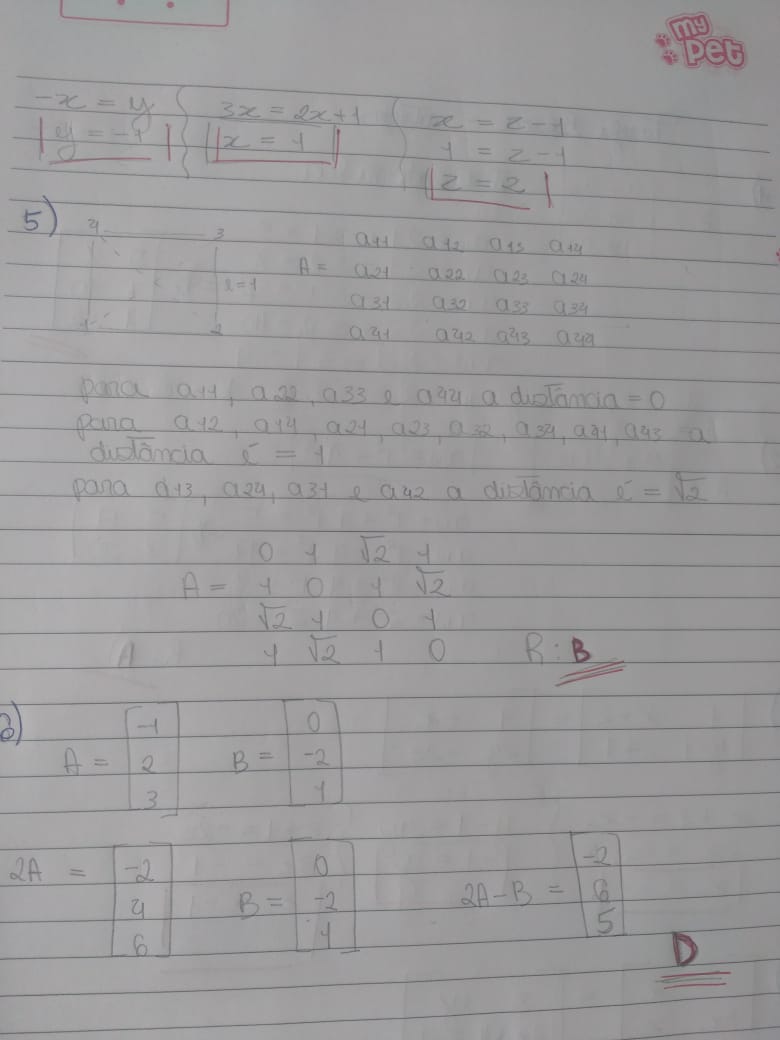 my pet
-x = y { 3x = 2x+1 { x = z-1
y = -1 x = 1 1 = z-1
z = 2
5) 4 3 a11 a12 a13 a14
A = a21 a22 a23 a24
l=1
a31 a32 a33 a34
1 2 a41 a42 a43 a44
para a11, a22, a33 e a44 a distância = 0
para a12, a14, a21, a23, a32, a34, a41, a43 a
distância é = 1
para a13, a24, a31 e a42 a distância é = √2
0 1 √2 1
A = 1 0 1 √2
√2 1 0 1
A 1 √2 1 0 R: B
6)
-1 0
A = 2 B = -2
3 1
-2 0 -2
2A = 4 B = -2 2A-B = 6
6 1 5
D